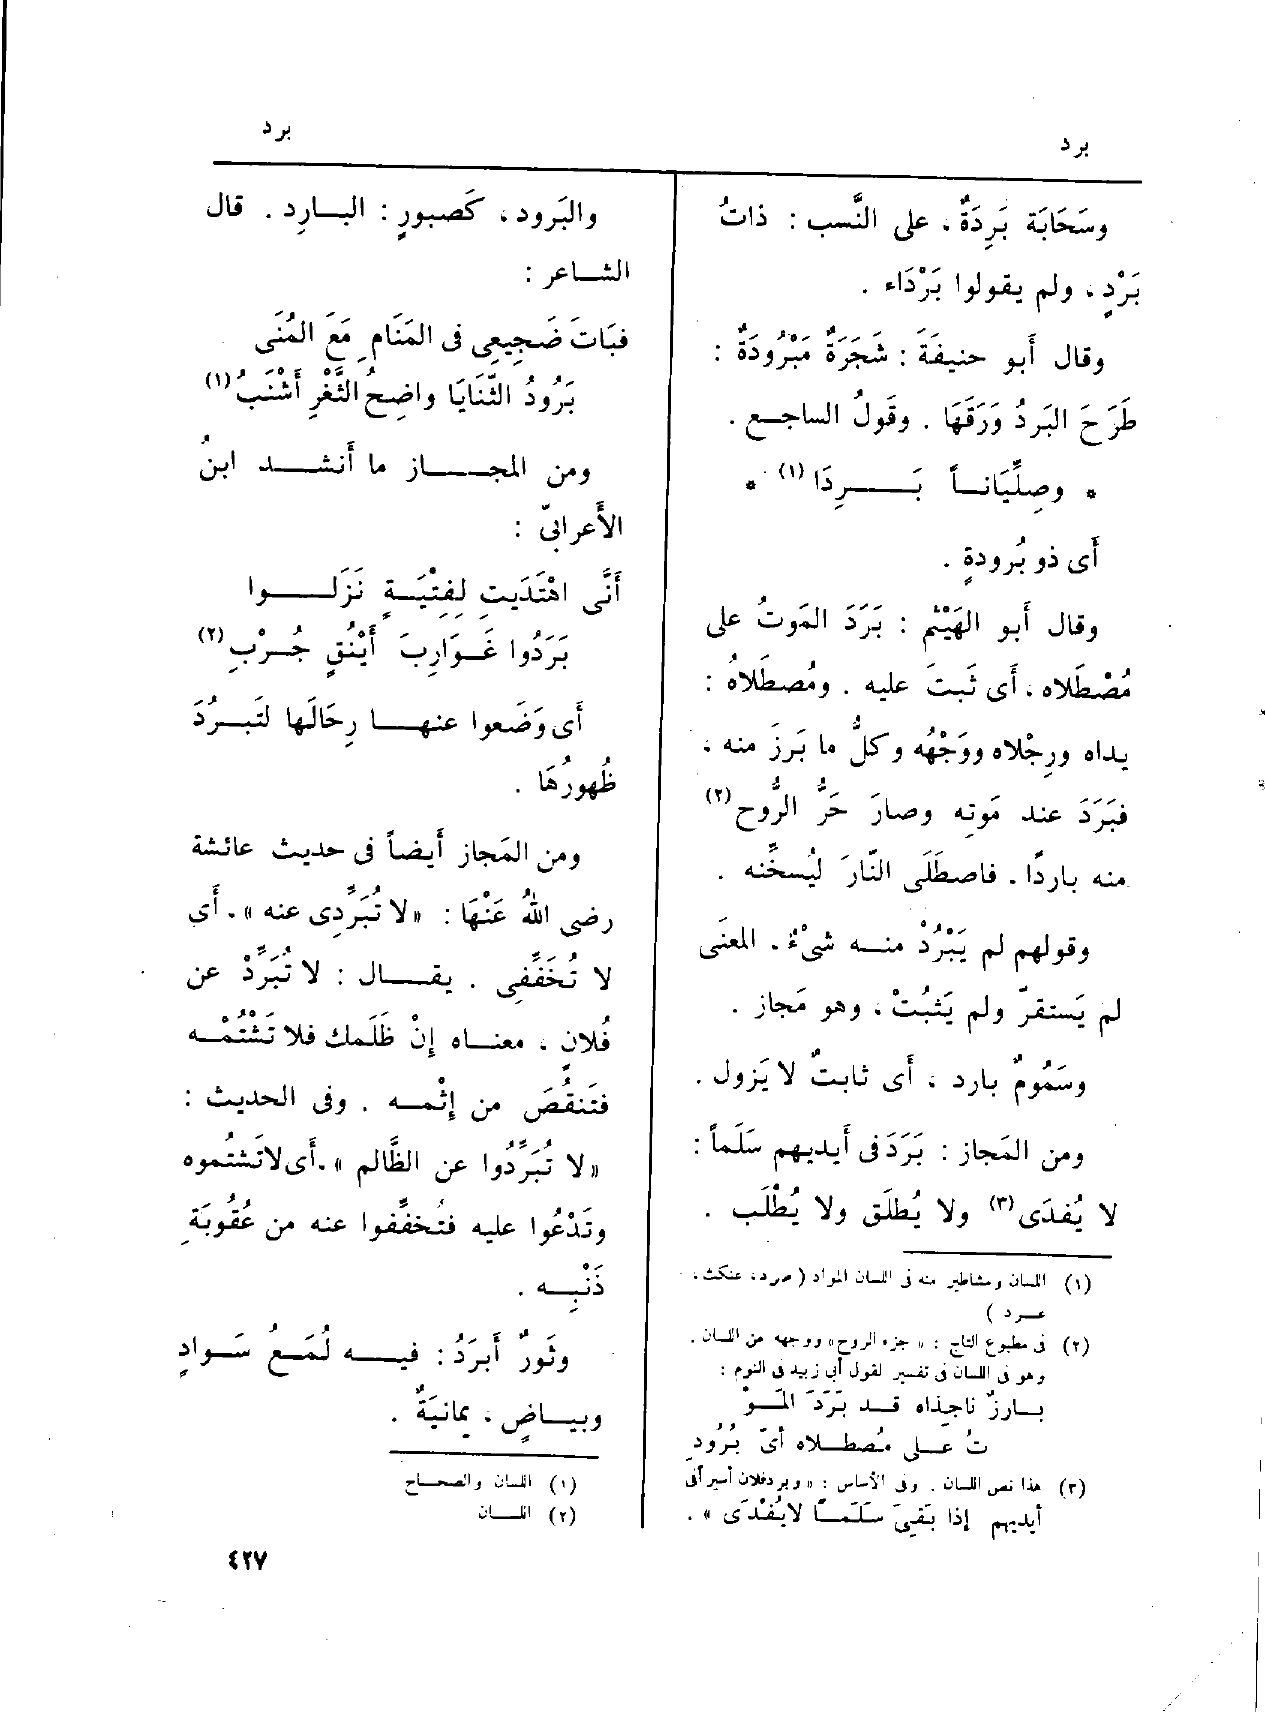 برد
برد
وسَحَابَة بَرِدَةٌ، على النَّسب : ذاتُ
بَرْدٍ، ولم يقولوا بَرْدَاء .
وقال أَبو حنيفَةَ : شَجَرَةٌ مَبْرُودَةٌ :
طَرَحَ البَردُ وَرَقَهَا . وقَولُ الساجع .
* وصِلِّيَاناً بَرِدَا (١) *
أَى ذو بُرودةٍ .
وقال أَبو الهَيْثم : بَرَدَ المَوتُ على
مُصْطَلاه، أَى ثَبتَ عليه . ومُصطَلاهُ :
يداه ورِجْلاه ووَجْهُه وكلُّ ما بَرزَ منه ،
فبَرَدَ عند مَوتِه وصارَ حَرُّ الرُّوح (٢)
منه باردًا . فاصطَلَى النَّارَ ليُسخِّنه .
وقولهم لم يَبْرُدْ منه شىْءٌ . المعنَى
لم يَستقرّ ولم يَثبُتْ، وهو مَجاز .
وسَمُومٌ بارد ، أَى ثابتٌ لا يَزول .
ومن المَجاز : بَرَدَ فى أَيديهم سَلَماً :
لا يُفدَى (٣) ولا يُطلَق ولا يُطْلَب .
(١) اللسان ومشاطير منه فى اللسان المواد ( صرد، عنكث،
عرد )
(٢) فى مطبوع التاج : « جزء الروح» ووجهه من اللسان .
وهو فى اللسان فى تفسير لقول أبى زبيد فى النوم :
بارزٌ ناجذاه قد بَرَدَ المَوْ
تُ على مُصطلاه أىّ بُرُودِ
(٣) هذا نص اللسان . وفى الأساس : « وبرد فلان أسيراً فى
أيديهم إذا بَقىَ سَلَماً لايُفْدَى » .
والبَرود، كَصبورٍ : البارِد . قال
الشاعر :
فبَاتَ ضَجِيعِى فى المَنَامِ مَعَ المُنَى
بَرُودُ الثَّنَايَا واضِحُ الثَّغْرِ أَشْنَبُ (١)
ومن المجاز ما أَنشد ابنُ
الأَعرابىّ :
أَنَّى اهْتَدَيتِ لِفِتْيَةٍ نَزَلوا
بَرَدُوا غَوَارِبَ أَيْنُقٍ جُرْبِ (٢)
أَى وَضَعوا عنها رِحَالَها لتَبرُدَ
ظُهورُهَا .
ومن المَجاز أَيضاً فى حديث عائشة
رضى اللهُ عَنْهَا : «لا تُبَرِّدِى عنه» . أَى
لا تُخَفِّفِى . يقال : لا تُبَرِّدْ عن
فُلانٍ ، معناه إِنْ ظَلَمك فلا تَشْتُمْه
فتَنقُصَ من إِثْمه . وفى الحديث :
«لا تُبَرِّدُوا عن الظَّالم» . أَى لاتَشتُموه
وتَدْعُوا عليه فتُخفِّفوا عنه من عُقُوبَةِ
ذَنْبِه .
وثَورٌ أَبرَدُ : فيه لُمَعُ سَوادٍ
وبياضٍ ، يمانيَةٌ .
(١) اللسان والصحاح
(٢) اللسان
٤٢٧